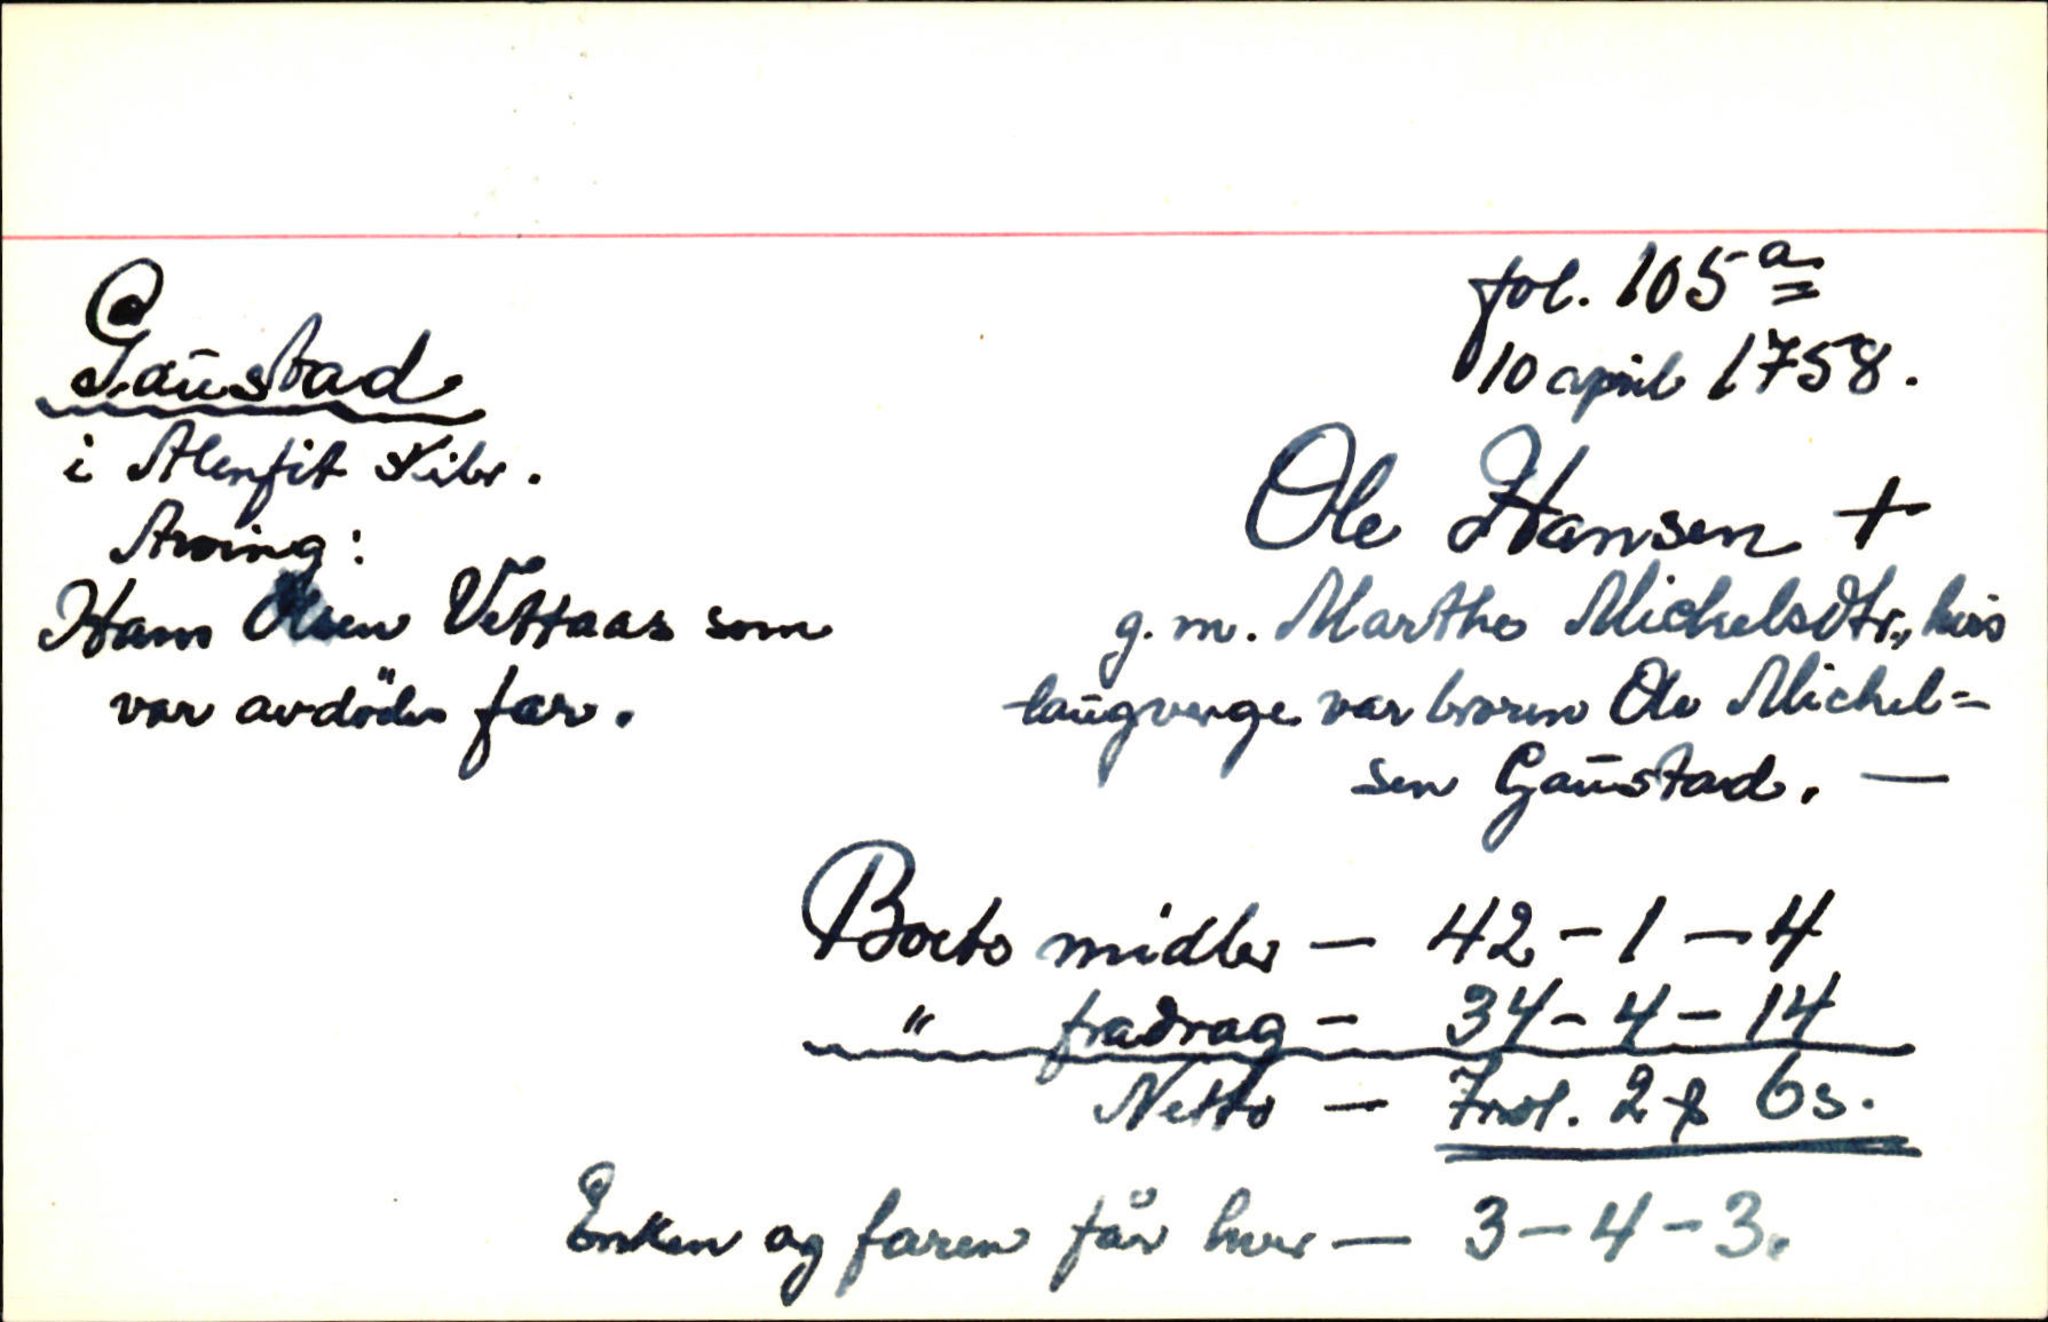 fol. 105 a
10 april 1758.
Gaustad
i Alenfit skibr.
Arving:
Hans Olsen Vettaas som
var avdödes far.
Ole Hansen +
g. m. Marthe Michelsdtr., hvis
laugverge var broren Ole Michel=
sen Gaustad. —
Boets midler — 42 - 1 — 4
" fradrag - 34 - 4 - 14
Netto — 7 rdl. 2 ƒ 6 s.
Enken og faren får hver — 3 - 4 - 3.